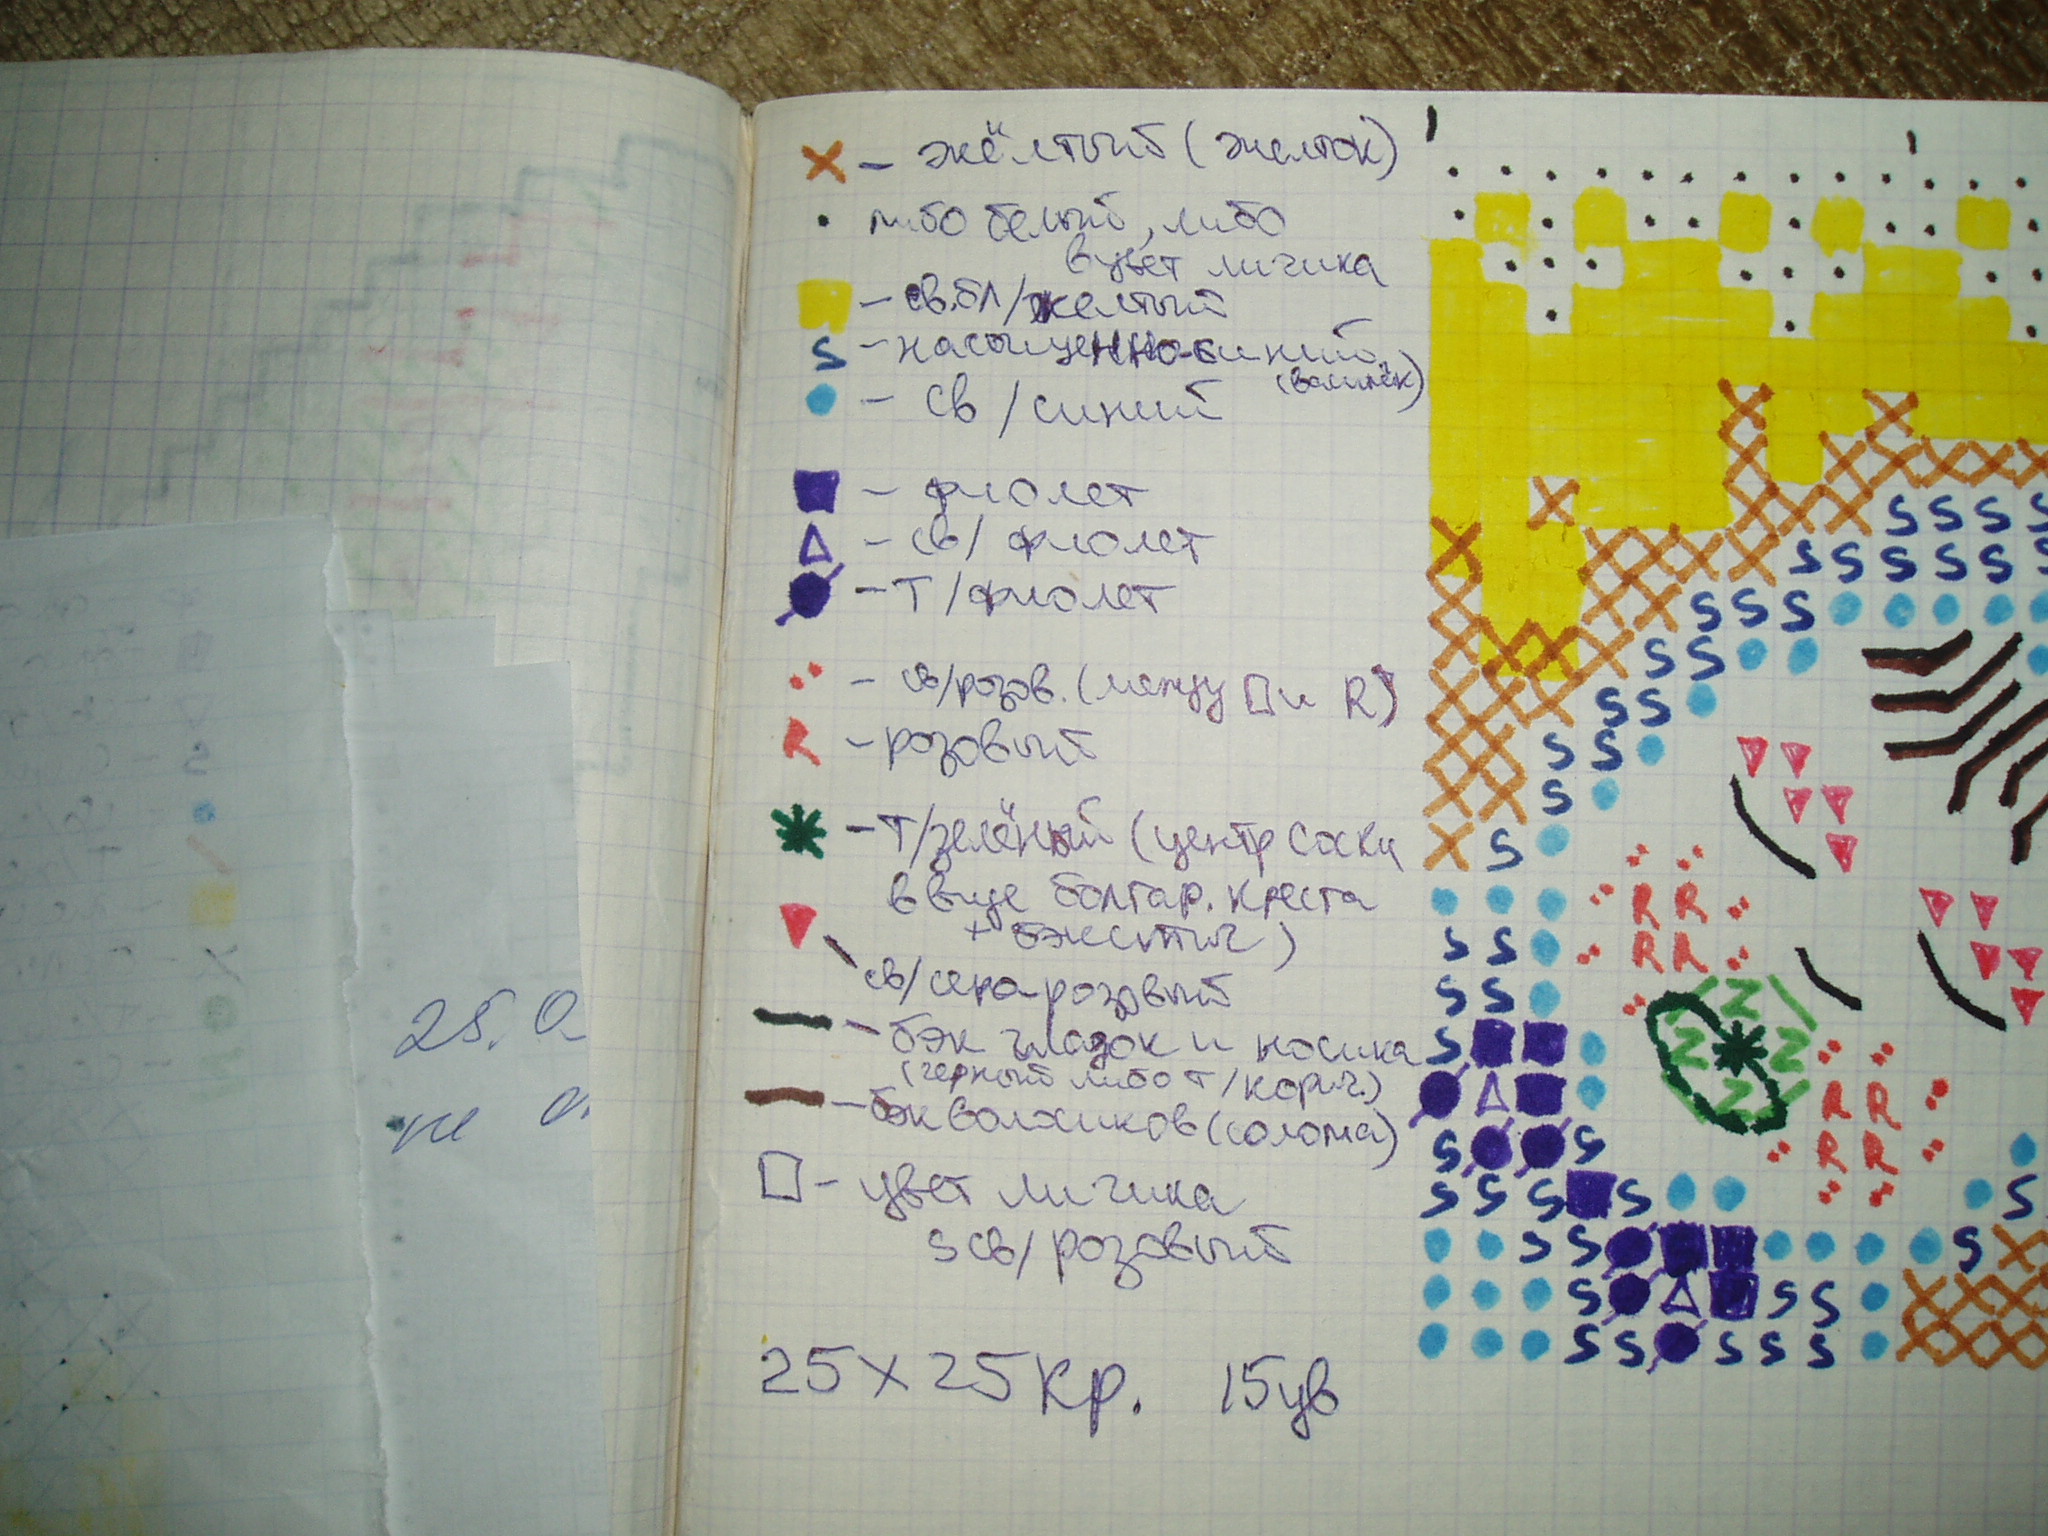 25. 0
не
- жёлтый (желток)
либо белый, либо
в цвет личика
- св.бл/желтый
S - насыщенно-синий
(василёк)
- св/синий
- фиолет
- св/фиолет
- т/фиолет
- св/розов. (между □ и R)
R - розовый
- т/зелёный (центр соски
в виде болгар. креста
+ бэкстич)
св/серо-розовый
- бэк глазок и носика
(черный либо т/корич.)
- бэк волосиков (солома)
□ - цвет личика
s св/розовый
25 x 25 кр. 15 цв